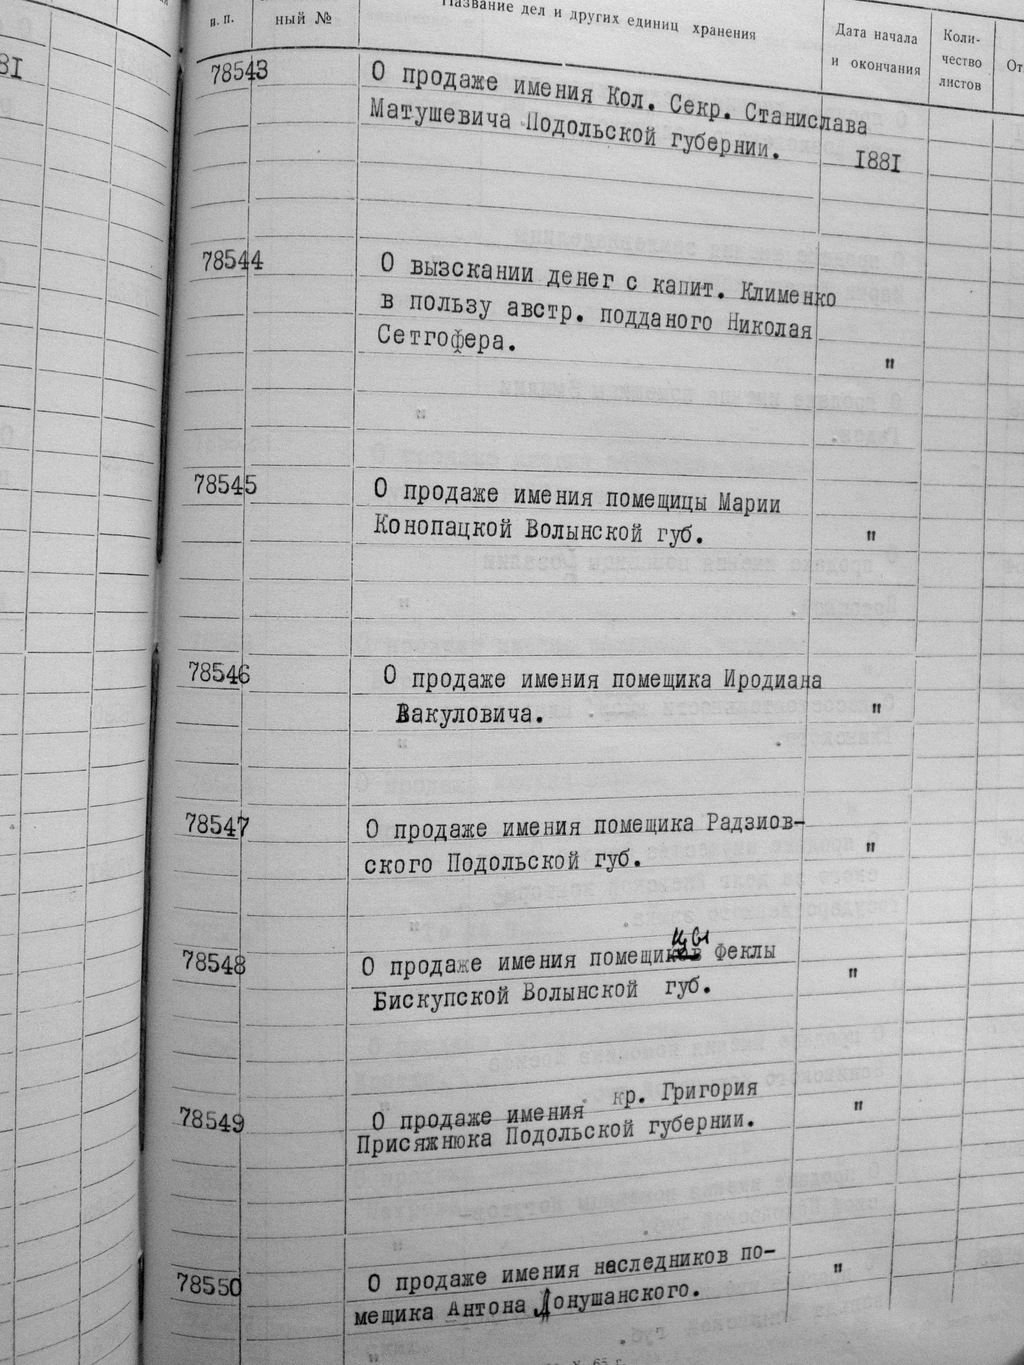 п. п.
ный №
Название дел и других единиц хранения
Дата начала
и окончания
Коли-
чество
листов
От
81
78543
О продаже имения Кол. Секр. Станислава
Матушевича Подольской губернии.
1881
78544
О вызскании денег с капит. Клименко
в пользу австр. подданого Николая
Сетгофера.
"
78545
О продаже имения помещицы Марии
Конопацкой Волынской губ.
"
78546
О продаже имения помещика Иродиана
Вакуловича.
"
78547
О продаже имения помещика Радзиов-
ского Подольской губ.
"
78548
О продаже имения помещицы Феклы
Бискупской Волынской губ.
"
78549
О продаже имения кр. Григория
Присяжнюка Подольской губернии.
"
78550
О продаже имения наследников по-
мещика Антона Донушанского.
"